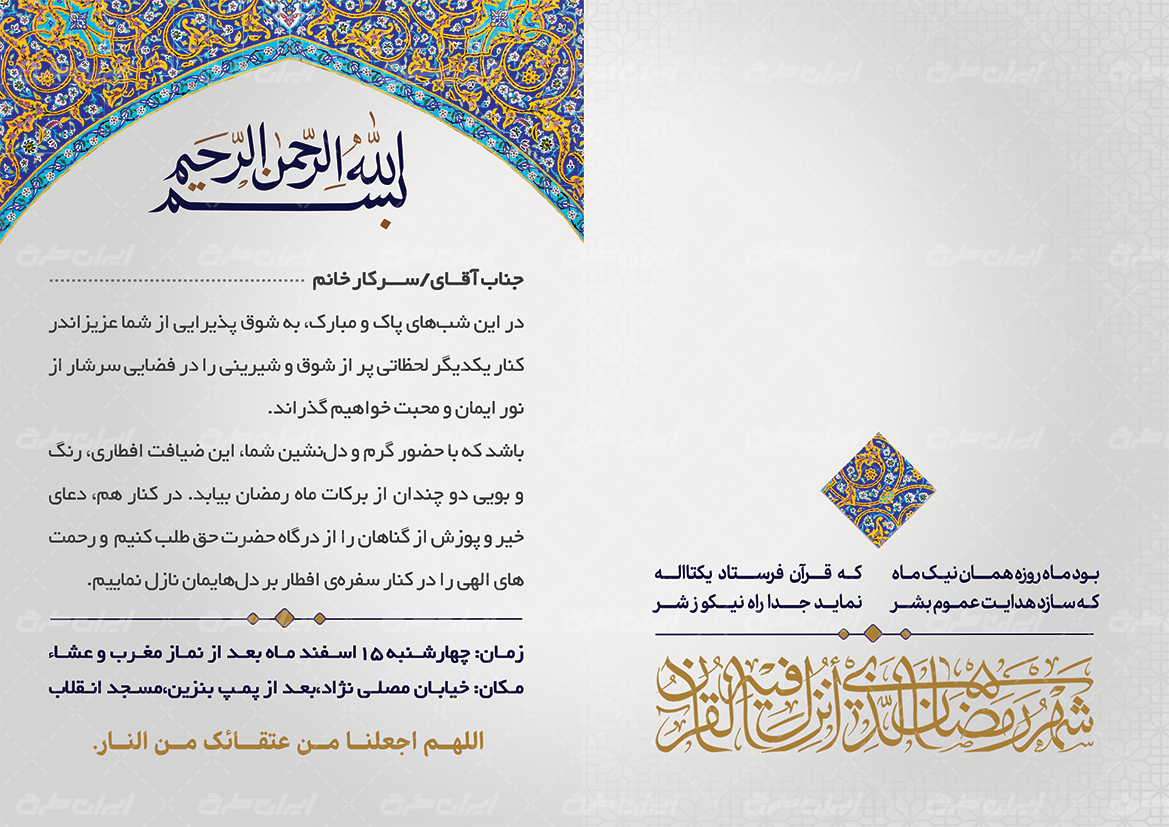 بسم الله الرحمن الرحیم
جناب آقای/سرکار خانم ................................................
در این شب‌های پاک و مبارک، به شوق پذیرایی از شما عزیز اندر
کنار یکدیگر لحظاتی پر از شوق و شیرینی را در فضایی سرشار از
نور ایمان و محبت خواهیم گذراند.
باشد که با حضور گرم و دل‌نشین شما، این ضیافت افطاری، رنگ
و بویی دو چندان از برکات ماه رمضان بیابد. در کنار هم، دعای
خیر و پوزش از گناهان را از درگاه حضرت حق طلب کنیم و رحمت
های الهی را در کنار سفره‌ی افطار بر دل‌هایمان نازل نماییم.
زمان: چهارشنبه ۱۵ اسفند ماه بعد از نماز مغرب و عشاء
مکان: خیابان مصلی نژاد،بعد از پمپ بنزین،مسجد انقلاب
اللهم اجعلنا من عتقائک من النار.
بود ماه روزه همان نیک ماه که قرآن فرستاد یکتااله
که سازد هدایت عموم بشر نماید جدا راه نیکو ز شر
شهر رمضان الذی أنزل فیه القرآن
ایران طرح